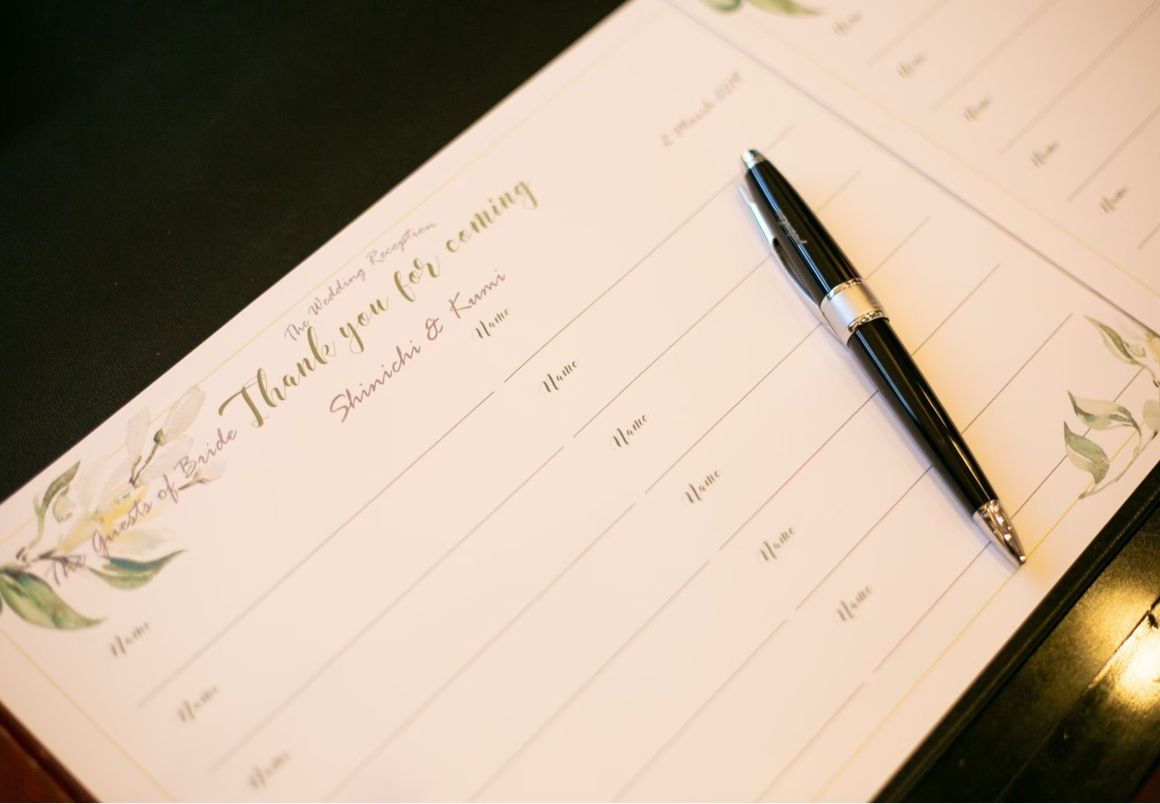 The Guests of Bride
The Wedding Reception
Thank you for coming
Shinichi & Kumi
2 March 2019
Name
Name
Name
Name
Name
Name
Name
Name
Name
Name
Name
Name
Name
Name